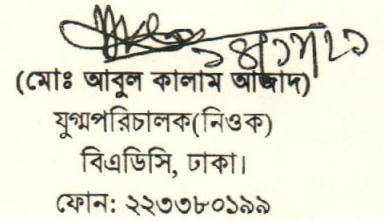 (মোঃ আবুল কালাম আজাদ)
যুগ্মপরিচালক(নিওক)
বিএডিসি, ঢাকা।
ফোন: ২২৩৩৮০১৯৯